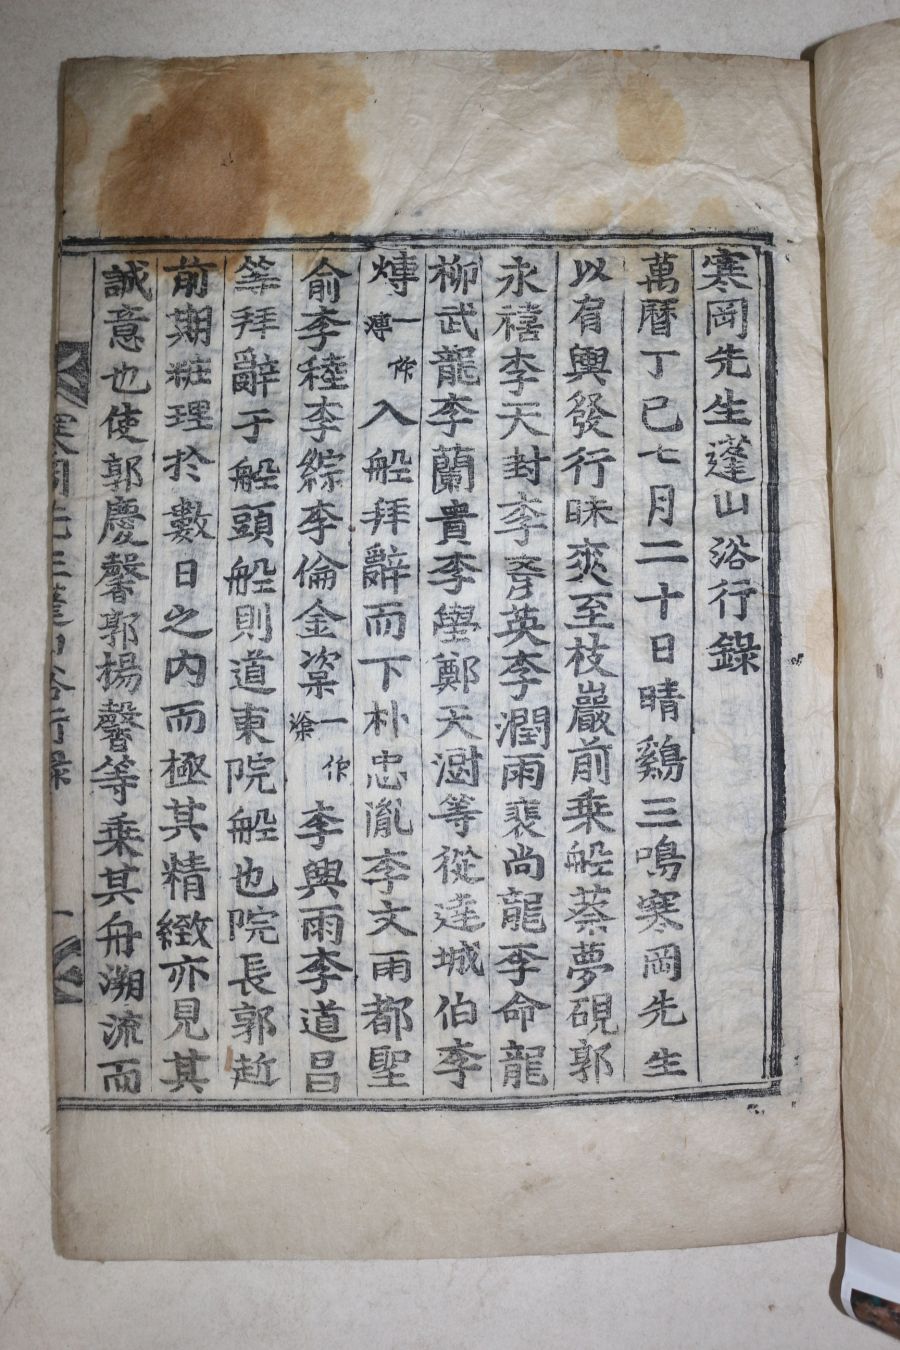 寒岡先生蓬山浴行錄
萬曆丁巳七月二十日晴鷄三鳴寒岡先生
以有輿發行昧爽至枝巖前乘船蔡夢硯郭
永禧李天封李彥英李潤雨裵尙龍李命龍
柳武龍李蘭貴李學鄭天澍等從達城伯李
煿一作溥入船拜辭而下朴忠胤李文雨都聖
兪李稑李綜李倫金濲一作㴜李興雨李道昌
等拜辭于船頭船則道東院船也院長郭赾
前期粧理於數日之內而極其精緻亦見其
誠意也使郭慶馨郭揚馨等乘其舟溯流而
寒岡先生蓬山浴行錄 一